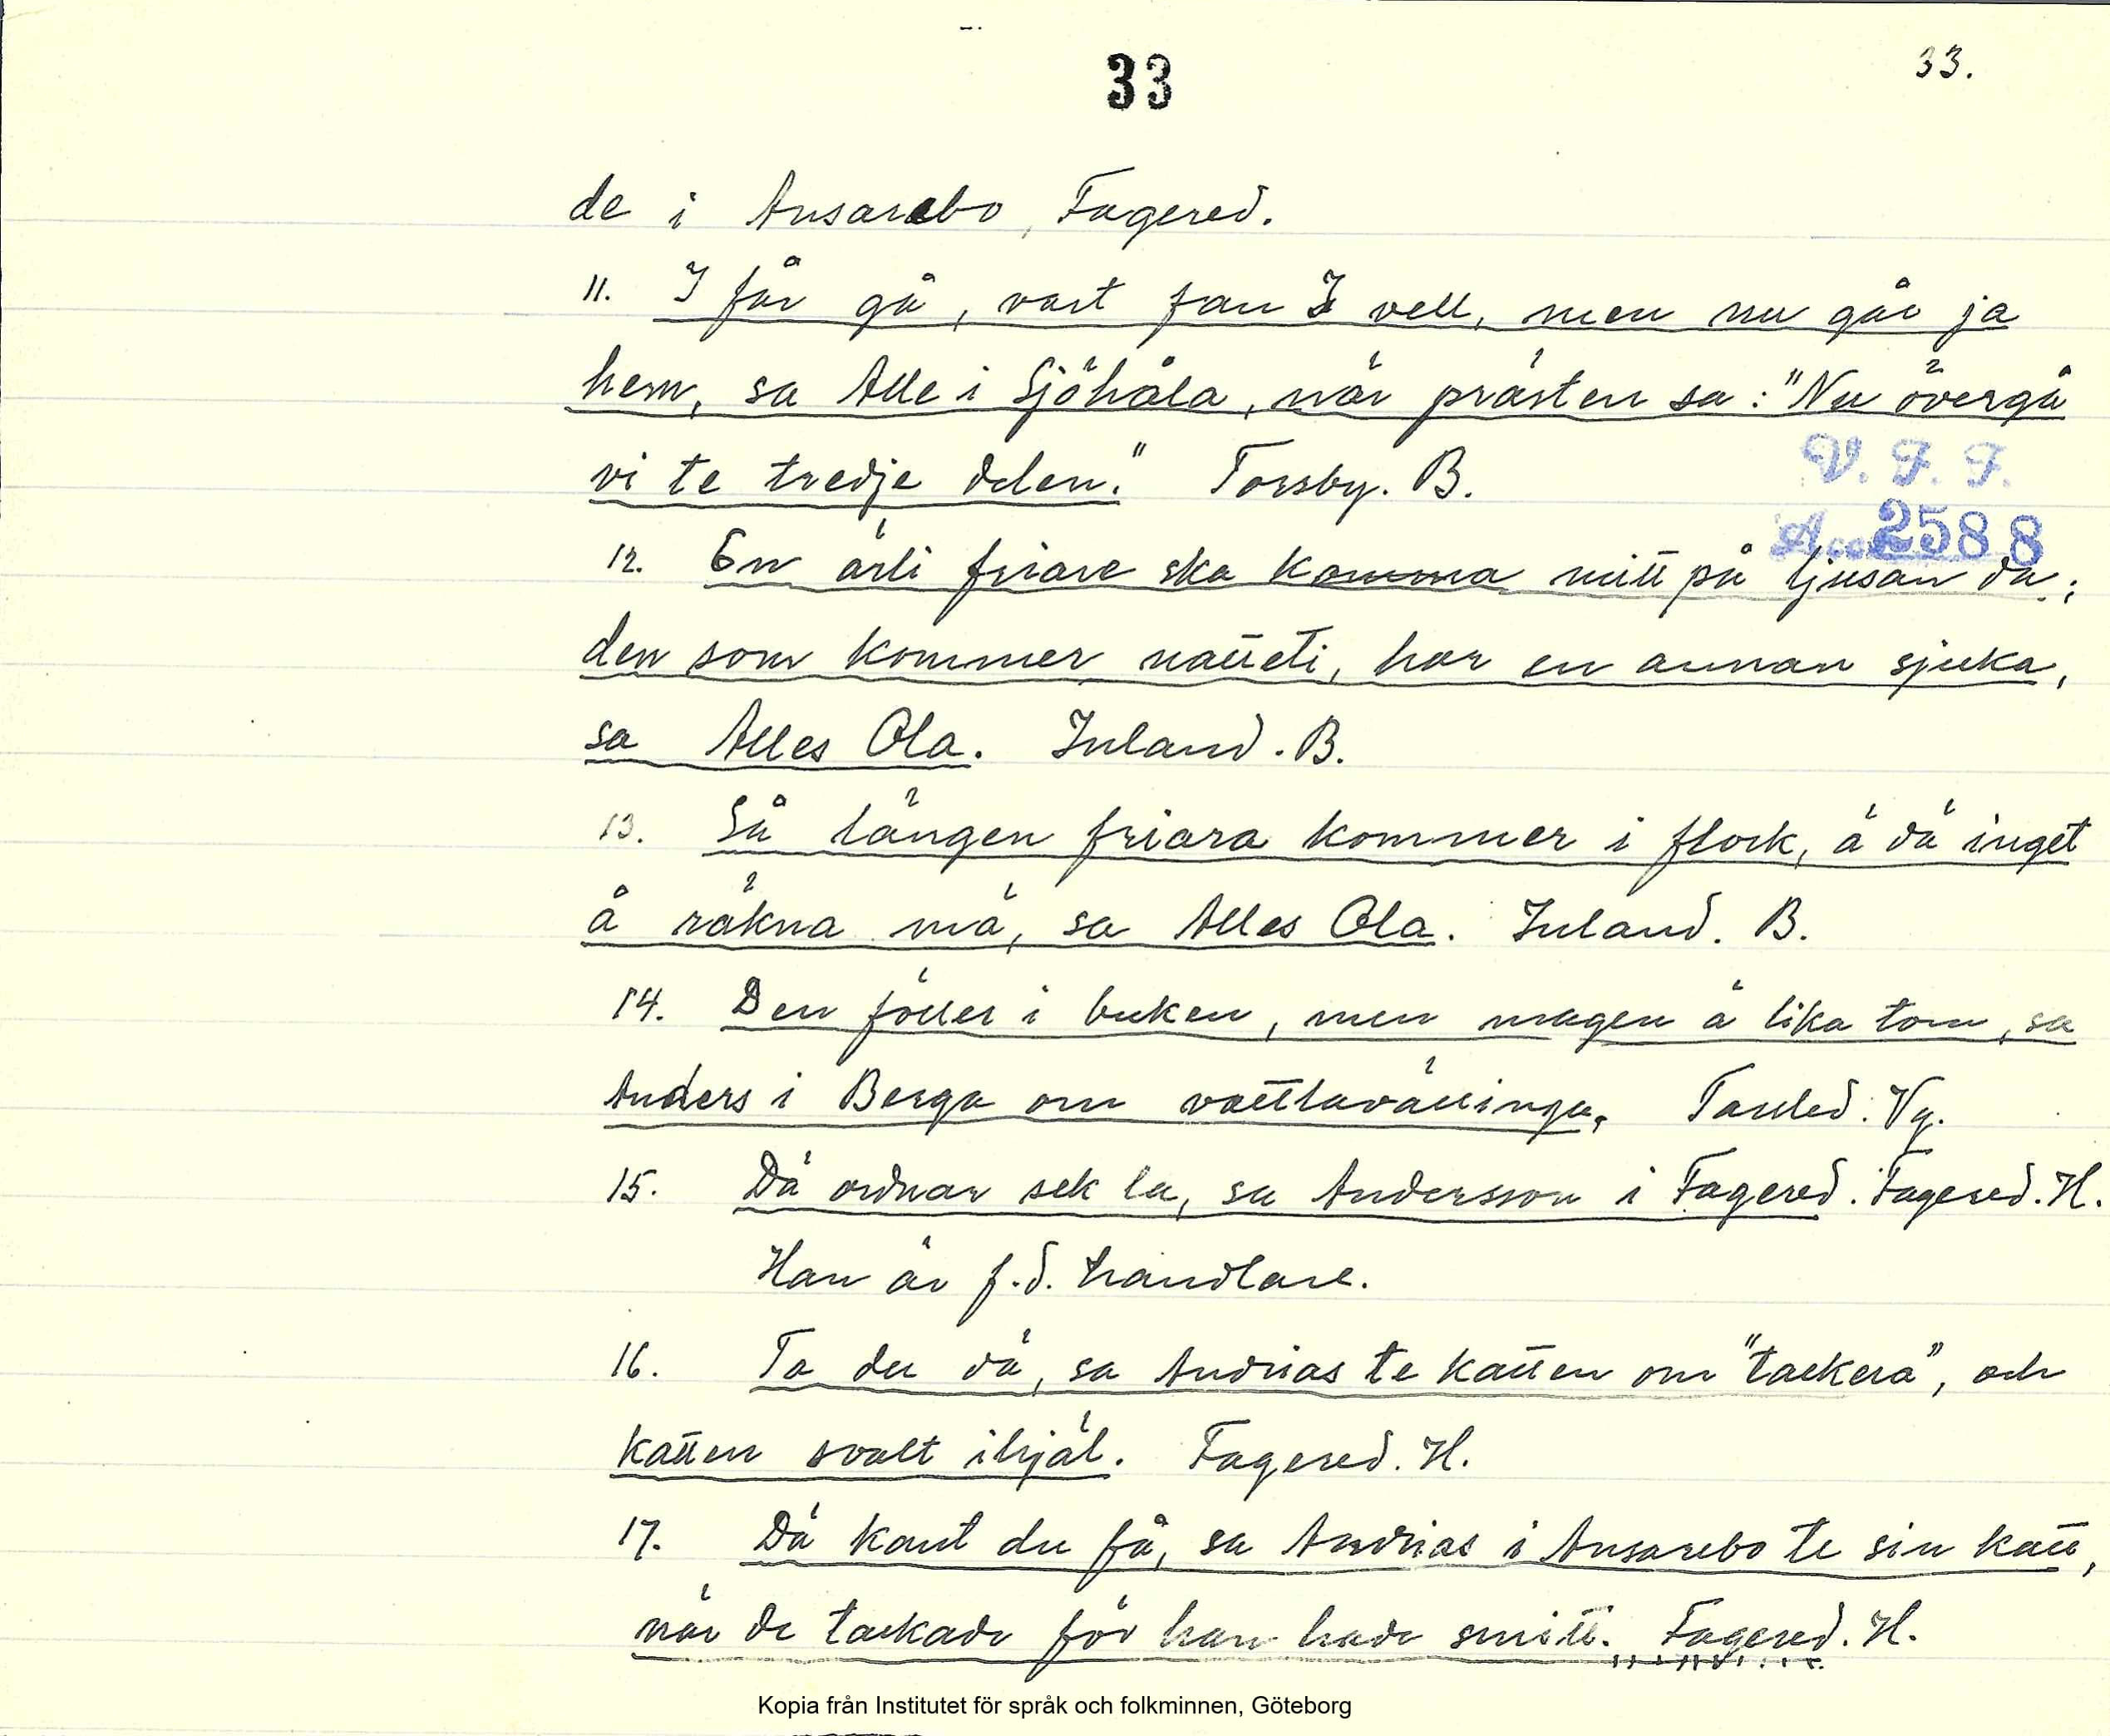 33
33.
de i Ansarebo, Fagered.
11. I får gå, vart fan I vell, men nu går ja
hem, sa Alle i Sjöhåla, när prästen sa: "Nu övergå
vi te tredje delen." Torsby. B.
V. F. F.
Acc. 2588
12. En ärli friare ska komma mitt på ljusan da;
den som kommer natteti, har en annan sjuka,
sa Alles Ola. Inland. B.
13. Så längen friara kommer i flock, ä dä inget
å räkna mä, sa Alles Ola. Inland. B.
14. Den föller i buken, men magen ä lika tom, sa
Anders i Berga om vattlavällinga. Vg.
15. Dä ordnar sek la, sa Andersson i Fagered. Fagered. H.
Han är f.d. handlare.
16. Ta du dä, sa Andrias te katten om "tackera", och
katten svalt ihjäl. Fagered. H.
17. Dä kant du få, sa Andrias i Ansarebo te sin katt,
när de tackade för han hade smitt. Fagered. H.
Kopia från Institutet för språk och folkminnen, Göteborg